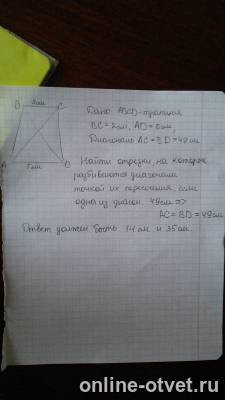 B 2см C
Дано: ABCD-трапеция
BC = 2см, AD = 5см,
Диагональ AC = BD = 49 см.
A 5см D
Найти отрезки, на которые
разбиваются диагонали
точкой их пересечения, если
одна из диагон. 49см =>
AC = BD = 49см
Ответ должен быть 14 см и 35 см.
online-otvet.ru